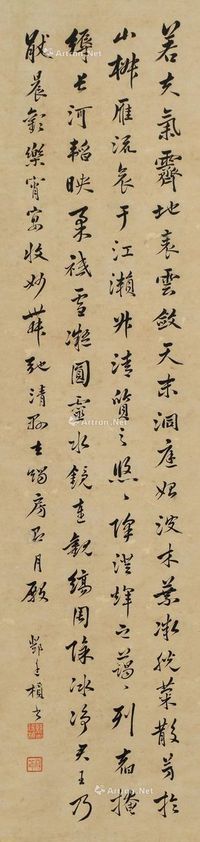 若夫氣霽地表雲斂天末洞庭始波木葉微脫菊散芳於
山椒雁流哀于江瀨升清質之悠〻降澄輝之藹〻列宿掩
縟長河韜映柔祇雪凝圓靈水鏡連觀縞周除冰淨君王乃
猒晨歡樂宵宴收妙舞弛清縣去燭房即月殿
書